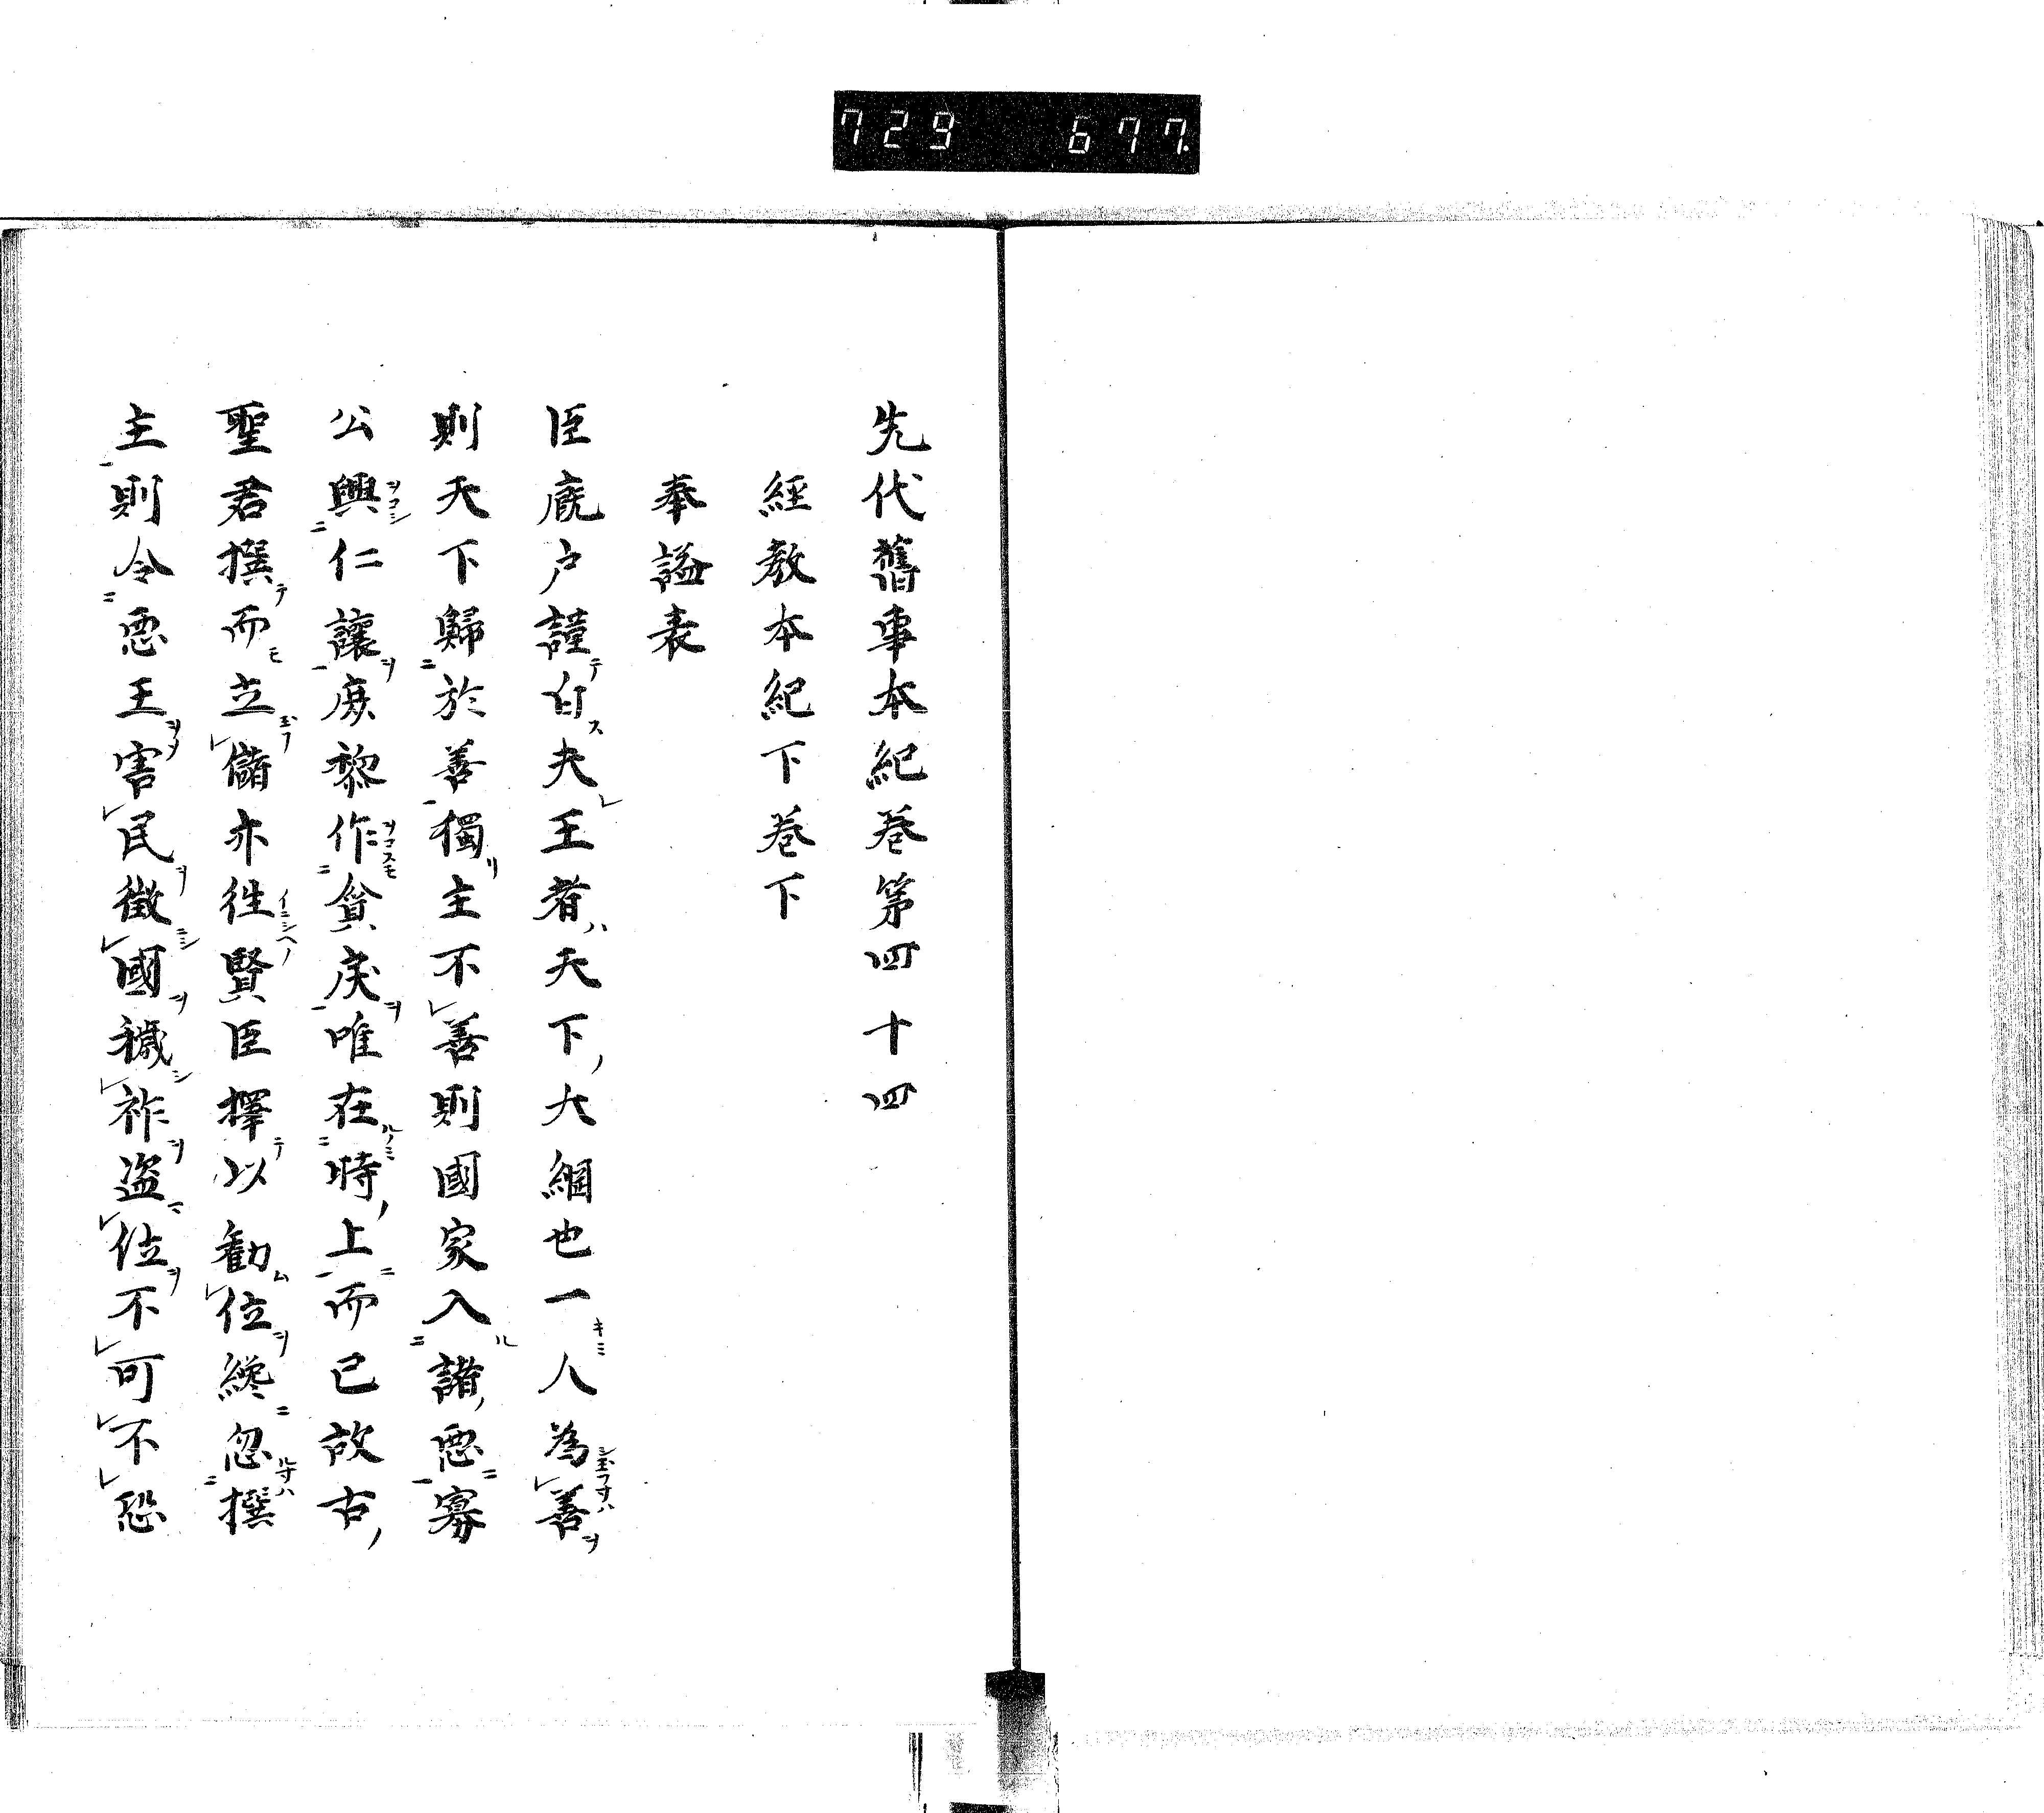 729 677.
先代舊事本紀巻第四十四
經教本紀下巻下
奉謚表
臣廐戸謹白夫王者天下大綱也一人為善
則天下歸於善獨主不善則國家入諸悪寡
公興仁讓庶黎作貧戻唯在時上而已故古
聖君撰而立儲亦徃賢臣擇以勸位纔忽撰
主則令悪王害民徴國穢祚盗位不可不恐